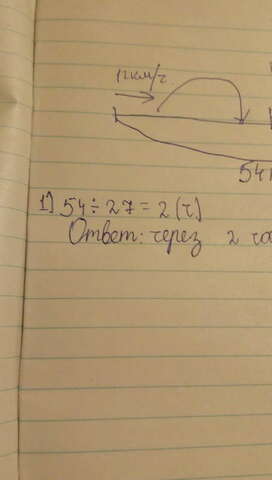 12км/ч
54
1) 54 ÷ 27 = 2 (ч)
Ответ: через 2